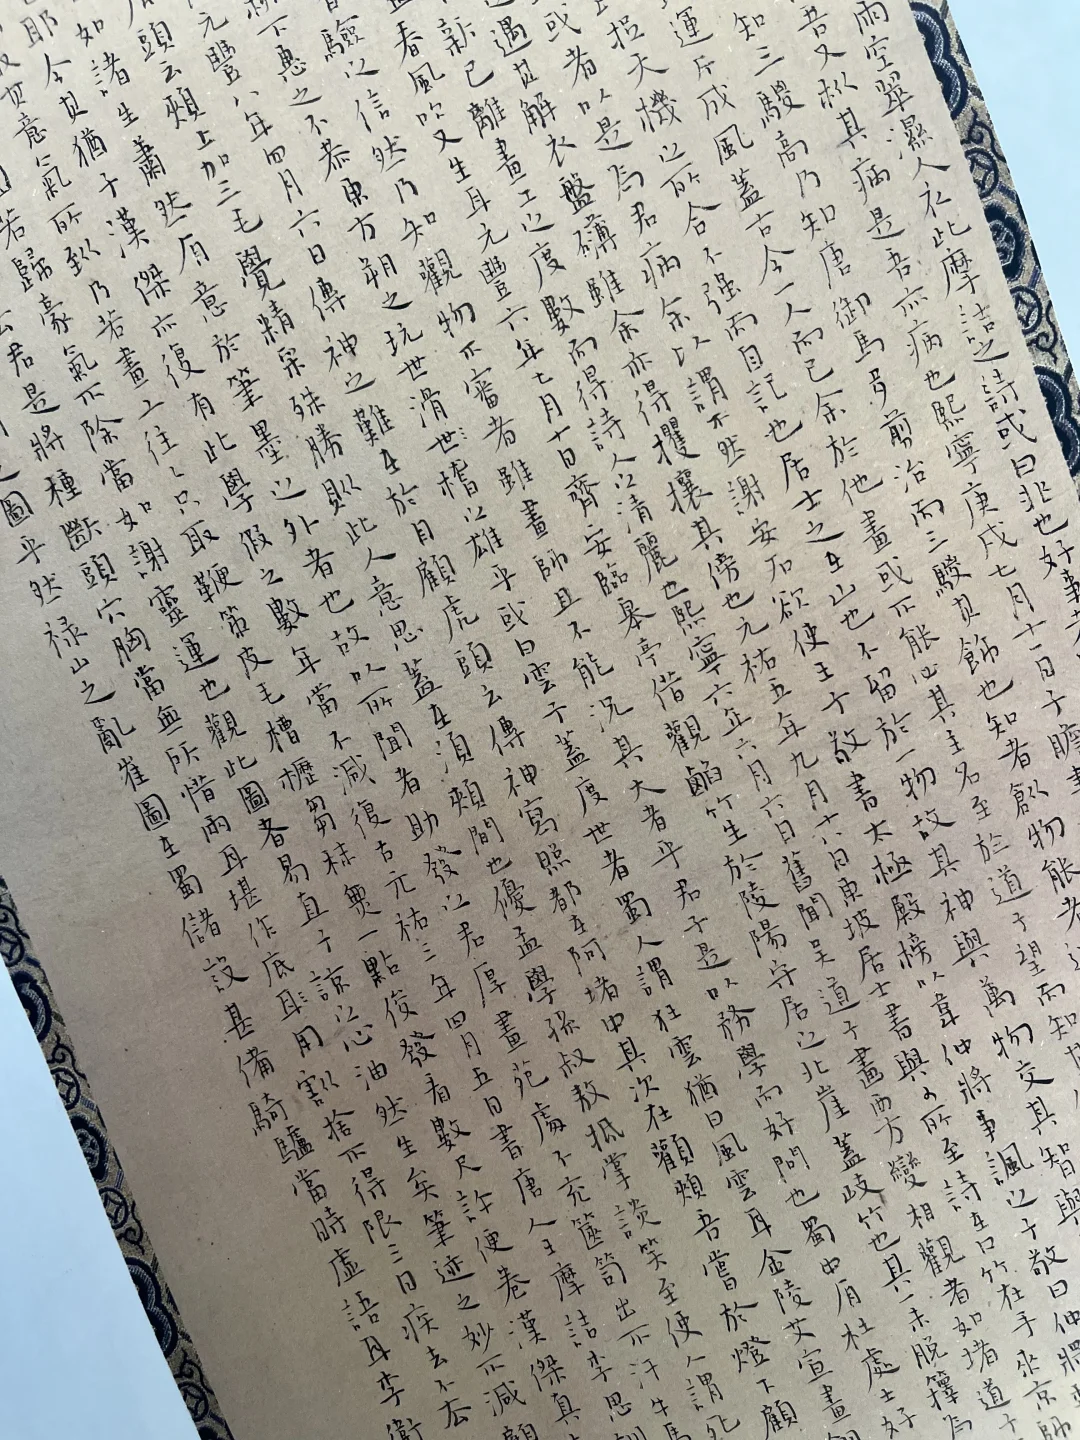 雨空單濕人衣此摩詰之詩或曰非也好事者
吾又從其病是吾亦病也熙寧庚戌七月十一日子瞻書
知三騣高乃知唐御馬多剪治而三騣其飾也知者創物能者
運斤成風蓋古今一人而已余於他畫或不能必其主名至於道子望而知
招天機之所合不强而自記也居士之在山也不留於一物故其神與萬物交其智與
或者以是為君病余以謂不然謝安石欲使王子敬書太極殿榜以韋仲將事諷之子敬曰仲將
遇其解衣盤礴雖余亦得攫攘其傍也元祐五年九月十八日東坡居士書與可所至詩在口竹在手來京師
新已離畫工之度數而得詩人之清麗也熙寧六年六月六日舊聞吳道子畫西方變相觀者如堵道子
春風吹又生耳元豐六年七月十日齊安臨皋亭借觀䶢竹生於陵陽守居之北崖蓋岐竹也其一未脫籜為
驗之信然乃知觀物不審者雖畫師且不能況其大者乎君子是以務學而好問也蜀中有杜處士好
下惠之不恭東方朔之玩世滑稽之雄乎或曰雲子蓋度世者蜀人謂狂雲猶曰風雲耳金陵艾宣畫
元豐八年四月六日傳神之難在於目顧虎頭云傳神寫照都在阿堵中其次在顴頰吾嘗於燈下顧
頭云頰上加三毛覺精采殊勝則此人意思蓋在須頰間也優孟學孫叔敖抵掌談笑至使人謂死
如諸生蕭然有意於筆墨之外者也故以所聞者助發之君厚畫苑處不充篋笥出不汗牛馬
耶今其猶子漢傑亦復有此學假之數年當不減復古元祐三年四月五日書唐人王摩詰李思訓
其意氣所到乃若畫工往〻只取鞭策皮毛槽櫪芻秣無一點俊發看數尺許便卷漢傑真
若歸豪氣不除當如謝靈運也觀此圖者易直子諒之心油然生矣筆迹之妙不減顧
君是將種斷頭穴胸當無所惜兩耳堪作底用割捨不得限三日疾去不去
之圖乎然祿山之亂崔圖在蜀儲設甚備騎驢當時虛語耳李衛